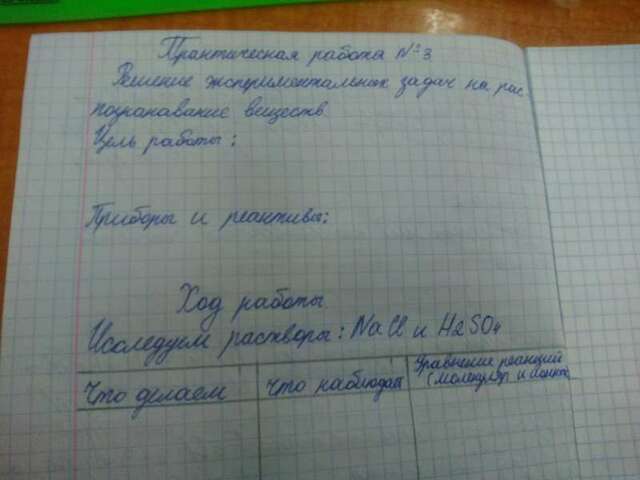 Практическая работа №3
Решение экспериментальных задач на рас
познавание веществ
Цель работы:
Приборы и реактивы:
Ход работы
Исследуем растворы: NaCl и H2SO4
Что делаем
Что наблюдаем
Уравнение реакций
(молекуляр и ионное